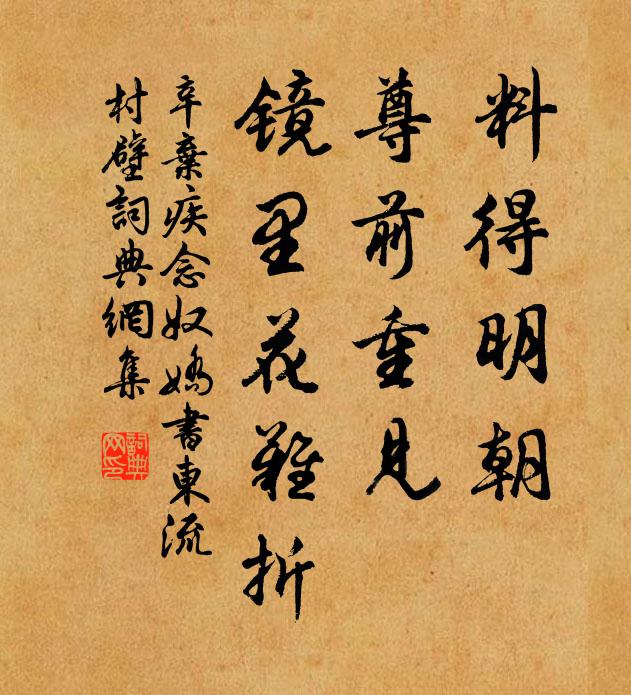 料得明朝
尊前重见
镜里花难折
辛棄疾念奴嬌書東流
村壁詞典網集
詞典
网印